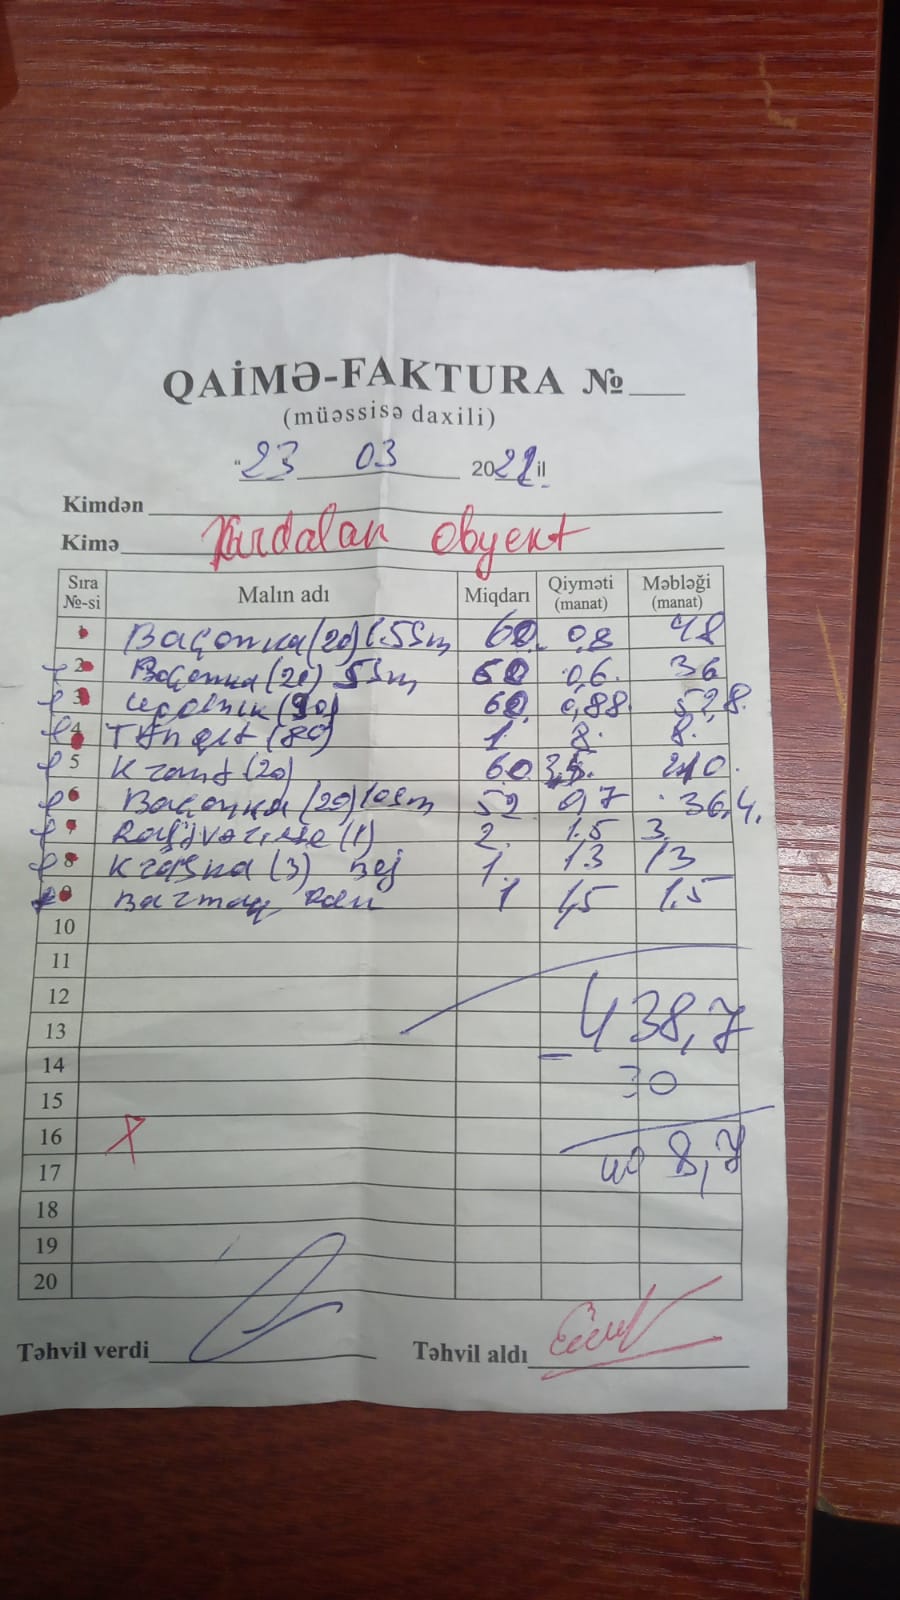 QAİMƏ-FAKTURA №
(müəssisə daxili)
"23 03 2022 il
Kimdən
Kimə Xırdalan obyekt
Sıra №-si Malın adı Miqdarı Qiyməti (manat) Məbləği (manat)
1 Boçonka (20) 1.5sm 60 0,8 48
2 Boçonka (20) 5sm 60 0,6 36
3 Uqolnik (90) 60 0,88 52,8
4 1 8 8
5 Krant (20) 60 3,5 210
6 Boçonka (20) 10sm 52 0,7 36,4
7 (1) 2 1.5 3
8 Kraska (3) Bej 1 13 13
9 Barmaq 1 1,5 1.5
10
11
12
438,7
13
14
- 30
15
16
408,7
17
18
19
20
Təhvil verdi Təhvil aldı